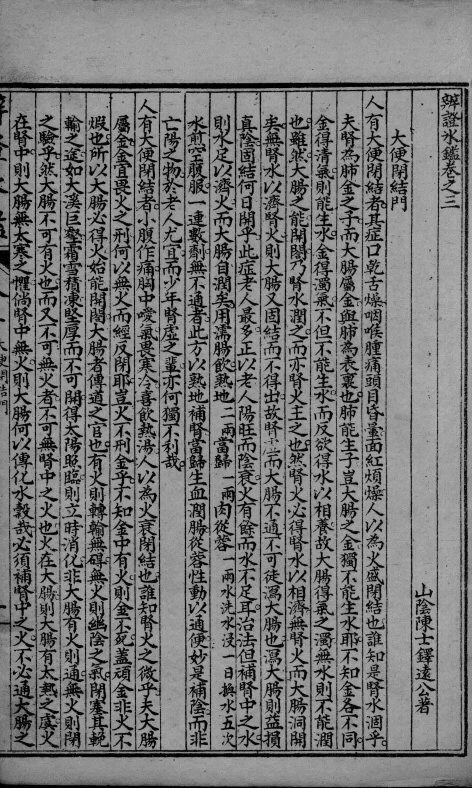 辨證冰鑑卷之三
山陰陳士鐸遠公著
大便閉結門
人有大便閉結者其症口乾舌燥咽喉腫痛頭目昏暈面紅煩燥人以為火盛閉結也誰知是腎水涸乎
夫腎為肺金之子而大腸屬金與肺為表裏也肺能生子豈大腸之金獨不能生水耶不知金各不同
金得清氣則能生水金得濁氣不但不能生水而反欲得水以相養故大腸得氣之濁無水則不能潤
也雖然大腸之能開闔乃腎水潤之而亦腎火主之也然腎火必得腎水以相濟無腎火而大腸洞開
矣無腎水以濟腎火則大腸又固結而不得出故腎而大腸不通不可徒瀉大腸也瀉大腸則益損
真陰固結何日開乎此症老人最多正以老人陽旺而陰衰火有餘而水不足耳治法但補腎中之水
則水足以濟火而大腸自潤矣用濡腸飲熟地二兩當歸一兩肉從蓉一兩水洗水浸一日換水五次
水煎空腹服一連數劑無不通者此方以熟地補腎當歸生血潤腸從蓉性動以通便妙是補陰而非
亡陽之物於老人尤宜而少年腎虛之輩亦何獨不利哉
人有大便閉結者小腹作痛胸中噯氣畏寒冷喜飲熱湯人以為火衰閉結也誰知腎火之微乎夫大腸
屬金金宜畏火之刑何以無火而經反閉耶豈火不刑金乎不知金中有火則金不死蓋頑金非火不
煅也所以大腸必得火始能開闔大腸者傳道之官也有火則轉輸無碍無火則幽陰之氣閉塞其輓
輸之途如大溪巨壑霜雪積凍堅厚而不可開得太陽照臨則立時消化非大腸有火則通無火則閉
之驗乎然大腸不可有火也而又不可無火者不可無腎中之火也火在大腸則大腸有太熱之虞火
在腎中則大腸無大寒之懼倘腎中無火則大腸何以傳化水穀哉必須補腎中之火不必通大腸之